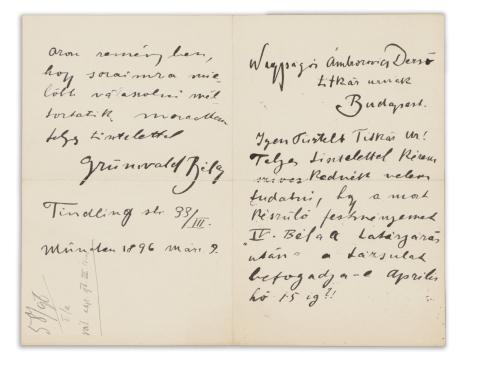 Nagyságos Ámbrozovics Dezső
titkár urnak
Budapest.
Igen Tisztelt Titkár Ur!
Teljes tisztelettel kérem
sziveskednék velem
tudatni, hogy a most
készülő festményemet
IV. Béla a tatárjárás
után" a társulat
befogadja-e április
hó 15 ig?!
Azon reményben,
hogy soraimra mie-
lőbb válaszolni mél-
tóztatik, maradtam
teljes tisztelettel
Grünwald Béla
Tindling str 33/III.
München 1896 márc. 9.